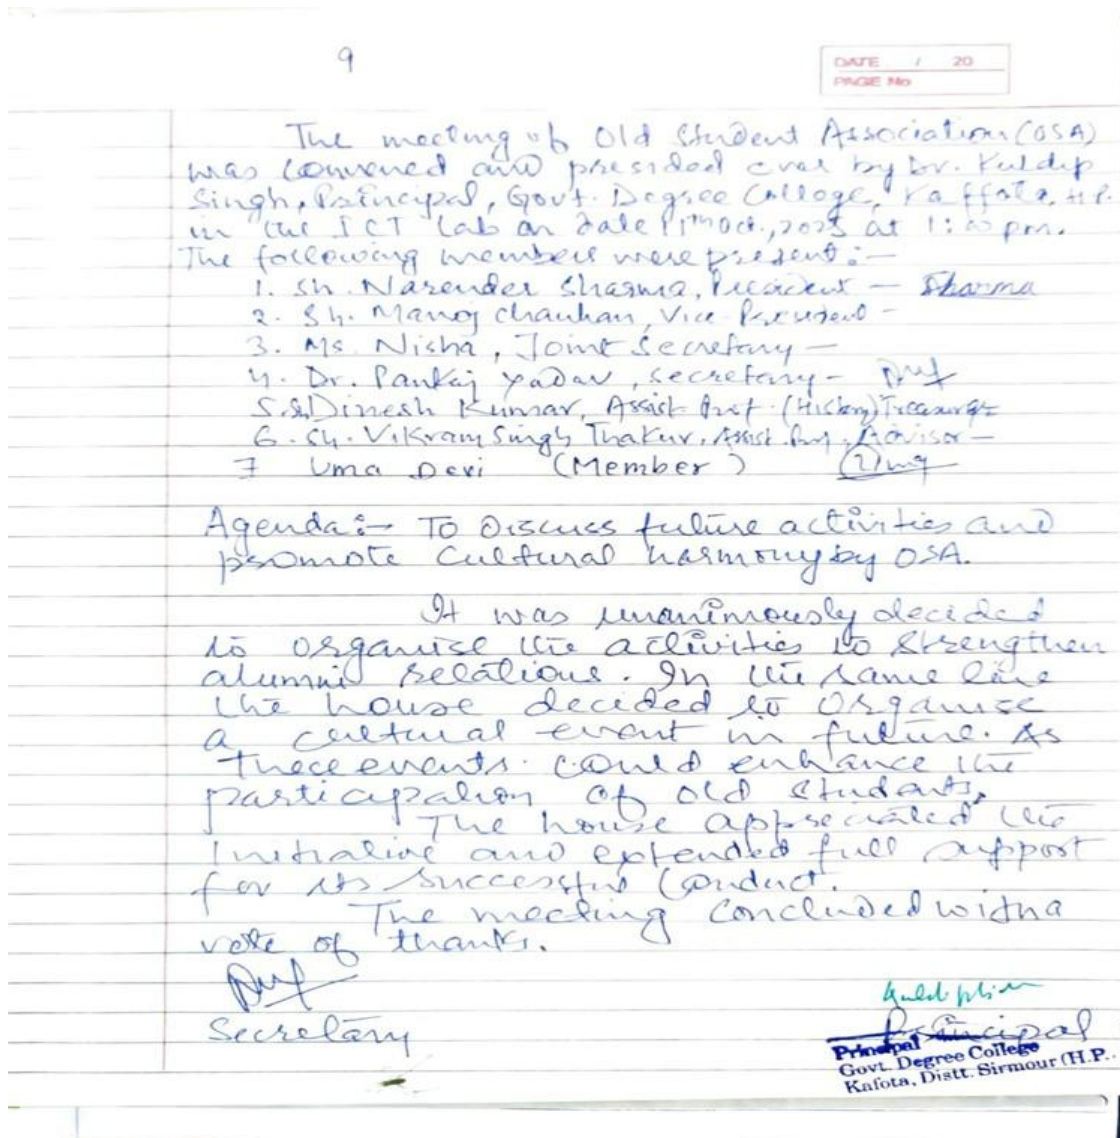 9
DATE / 20
PAGE No
The meeting of Old Student Association (OSA)
was convened and presided over by Dr. Kuldip
Singh, Principal, Govt. Degree College, Kaffota, H.P.
in the ICT Lab on date Oct., 2025 at pm.
The following members were present:-
1. Sh. Narender Sharma, President - Sharma
2. Sh. Manoj Chauhan, Vice President -
3. Ms. Nisha, Joint Secretary -
4. Dr. Pankaj Yadav, Secretary -
5. Sh. Dinesh Kumar, Assist. Prof. (History) Treasurer
6. Sh. Vikram Singh Thakur, Assist. Prof., Advisor -
7 Uma Devi (Member)
Agenda:- To Discuss future activities and
promote Cultural harmony by OSA.
It was unanimously decided
to organise the activities to strengthen
alumni relations. In the same line
the house decided to organise
a cultural event in future. As
these events could enhance the
participation of old students.
The house appreciated the
Initiative and extended full support
for its successful conduct.
The meeting concluded with a
vote of thanks.
Secretary
Principal
Principal
Govt. Degree College
Kafota, Distt. Sirmour (H.P.